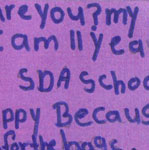 are you? my
I am 11 yea
SDA schoo
ppy Becaus
for the